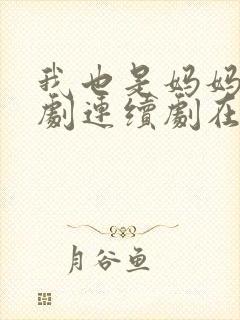 我也是妈妈
劇連續劇在
月谷鱼